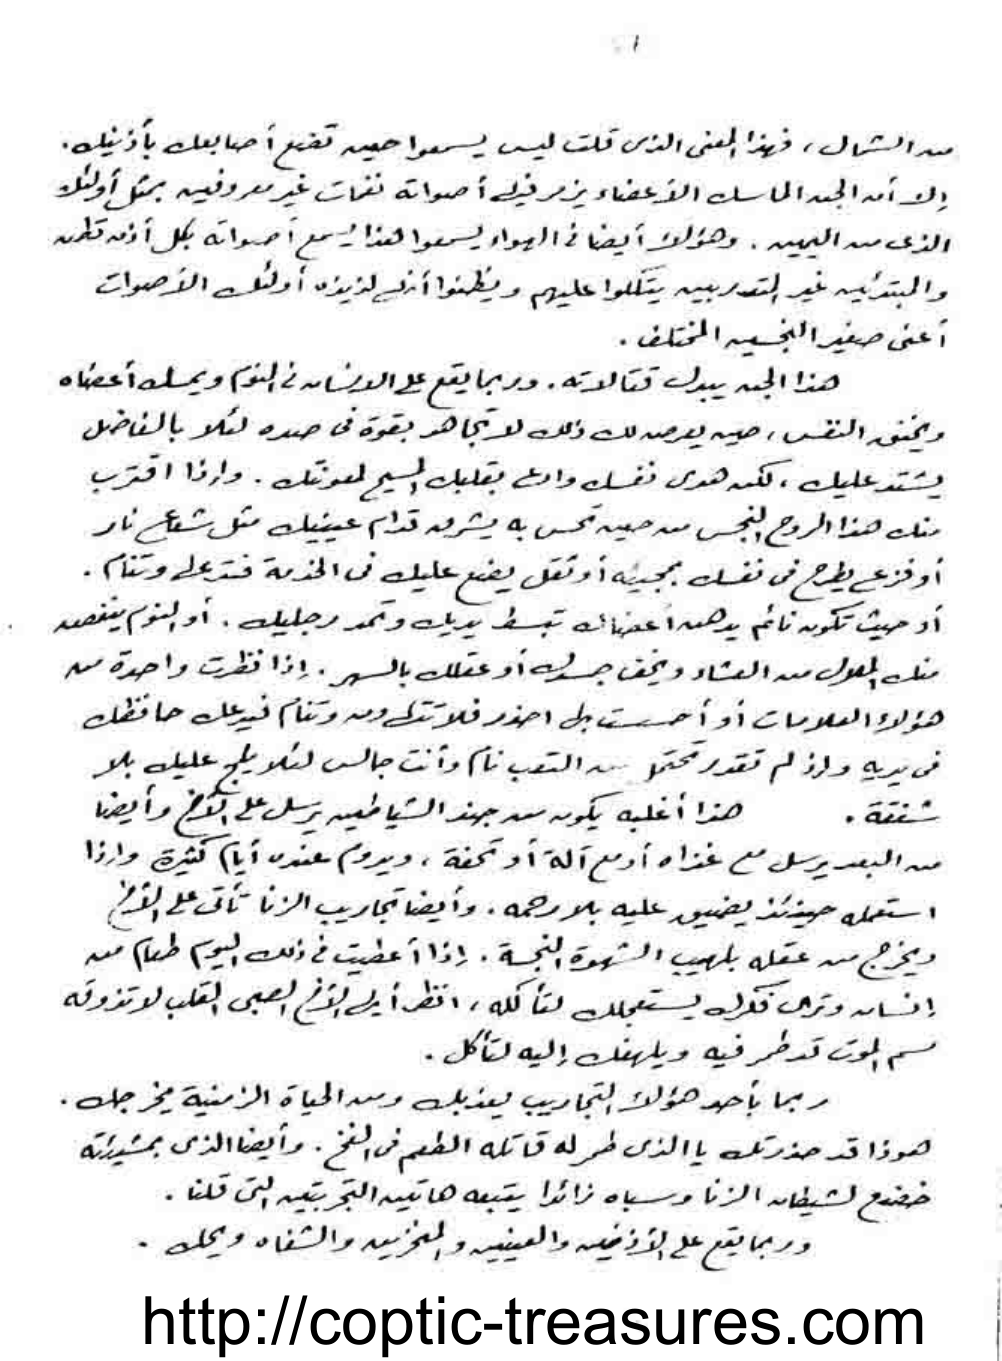 ١
من الشمال ، فهذا المعنى الذى قلت ليس يسمعوا حين تضع أصابعك بأذنيك .
إلا أن الجن الماسك الأعضاء يزمر فيك أصواته نغمات غير معروفين بمثل أولئك
الذى من اليمين . وهؤلاء أيضا فى الهواء يسمعوا هذا يُسمع أصواته بكل أذن تطن
والمبتدئين غير المتدربين يتكلوا عليهم ويظنوا أنها لذيذه أولئك الأصوات
أعنى صفير النجسين المختلف .
هذا الجن يبدل قتالاته . وربما يقع على الانسان فى النوم ويمسك أعضاه
ويخنق النفس ، حين يعرض لك ذلك لا تجاهر بقوة فى ضده لئلا بالفاضل
يشتد عليك ، لكن هدى نفسك وادع بقلبك المسيح لمعونتك . واذا اقترب
منك هذا الروح النجس من حين تحس به يشرق قدام عينيك مثل شعاع نار
أو فزع يطرح فى نفسك بمجيئه أو ثقل يضع عليك فى الخدمة فتتدلى وتنام .
أو حيث تكون نائم يدهن أعضائك تبسط يديك وتمد رجليك . أو النوم ينقصه
منك الملاك من العشاء ويخف جسدك أو عقلك بالسهر . إذا نظرت واحدة من
هؤلاء العلامات أو أحسست بها احذر فلا تتدلى وتنام فيدعك حافظك
فى يديه وإذ لم تقدر تحتمل من التعب نام وأنت جالس لئلا يلج عليك بلا
شفقة . هذا أغلبه يكون من جهة الشياطين يرسل على الأخ وأيضا
من البعد يرسل مع غذاه أو مع آلة أو تحفة ، ويدوم عنده أيام كثيرة واذا
استعمله حينئذ يضيق عليه بلا رحمه . وأيضا تجاريب الزنا تأتى على الأخ
ويخرج من عقله بلهيب الشهوة النجسة . إذا أعطيت فى ذلك اليوم طعام من
إنسان وترى فكرك يستعجلك لتأكله ، انظر أيها الأخ الصبى القلب لا تذوقه
سم الموت قد طمر فيه ويلهفك إليه لتأكل .
ربما بأحد هؤلاء التجاريب يعذبك ومن الحياة الزمنية يخرجك .
هوذا قد حذرتك يا الذى طمر له قاتله الطعم فى الفخ . وأيضا الذى بمشيئته
خضع لشيطان الزنا وسباه زائدا يتبعه هاتين التجربتين التى قلنا .
وربما يقع على الأذنين والعينين والمنخرين والشفاه ويحك .
http://coptic-treasures.com